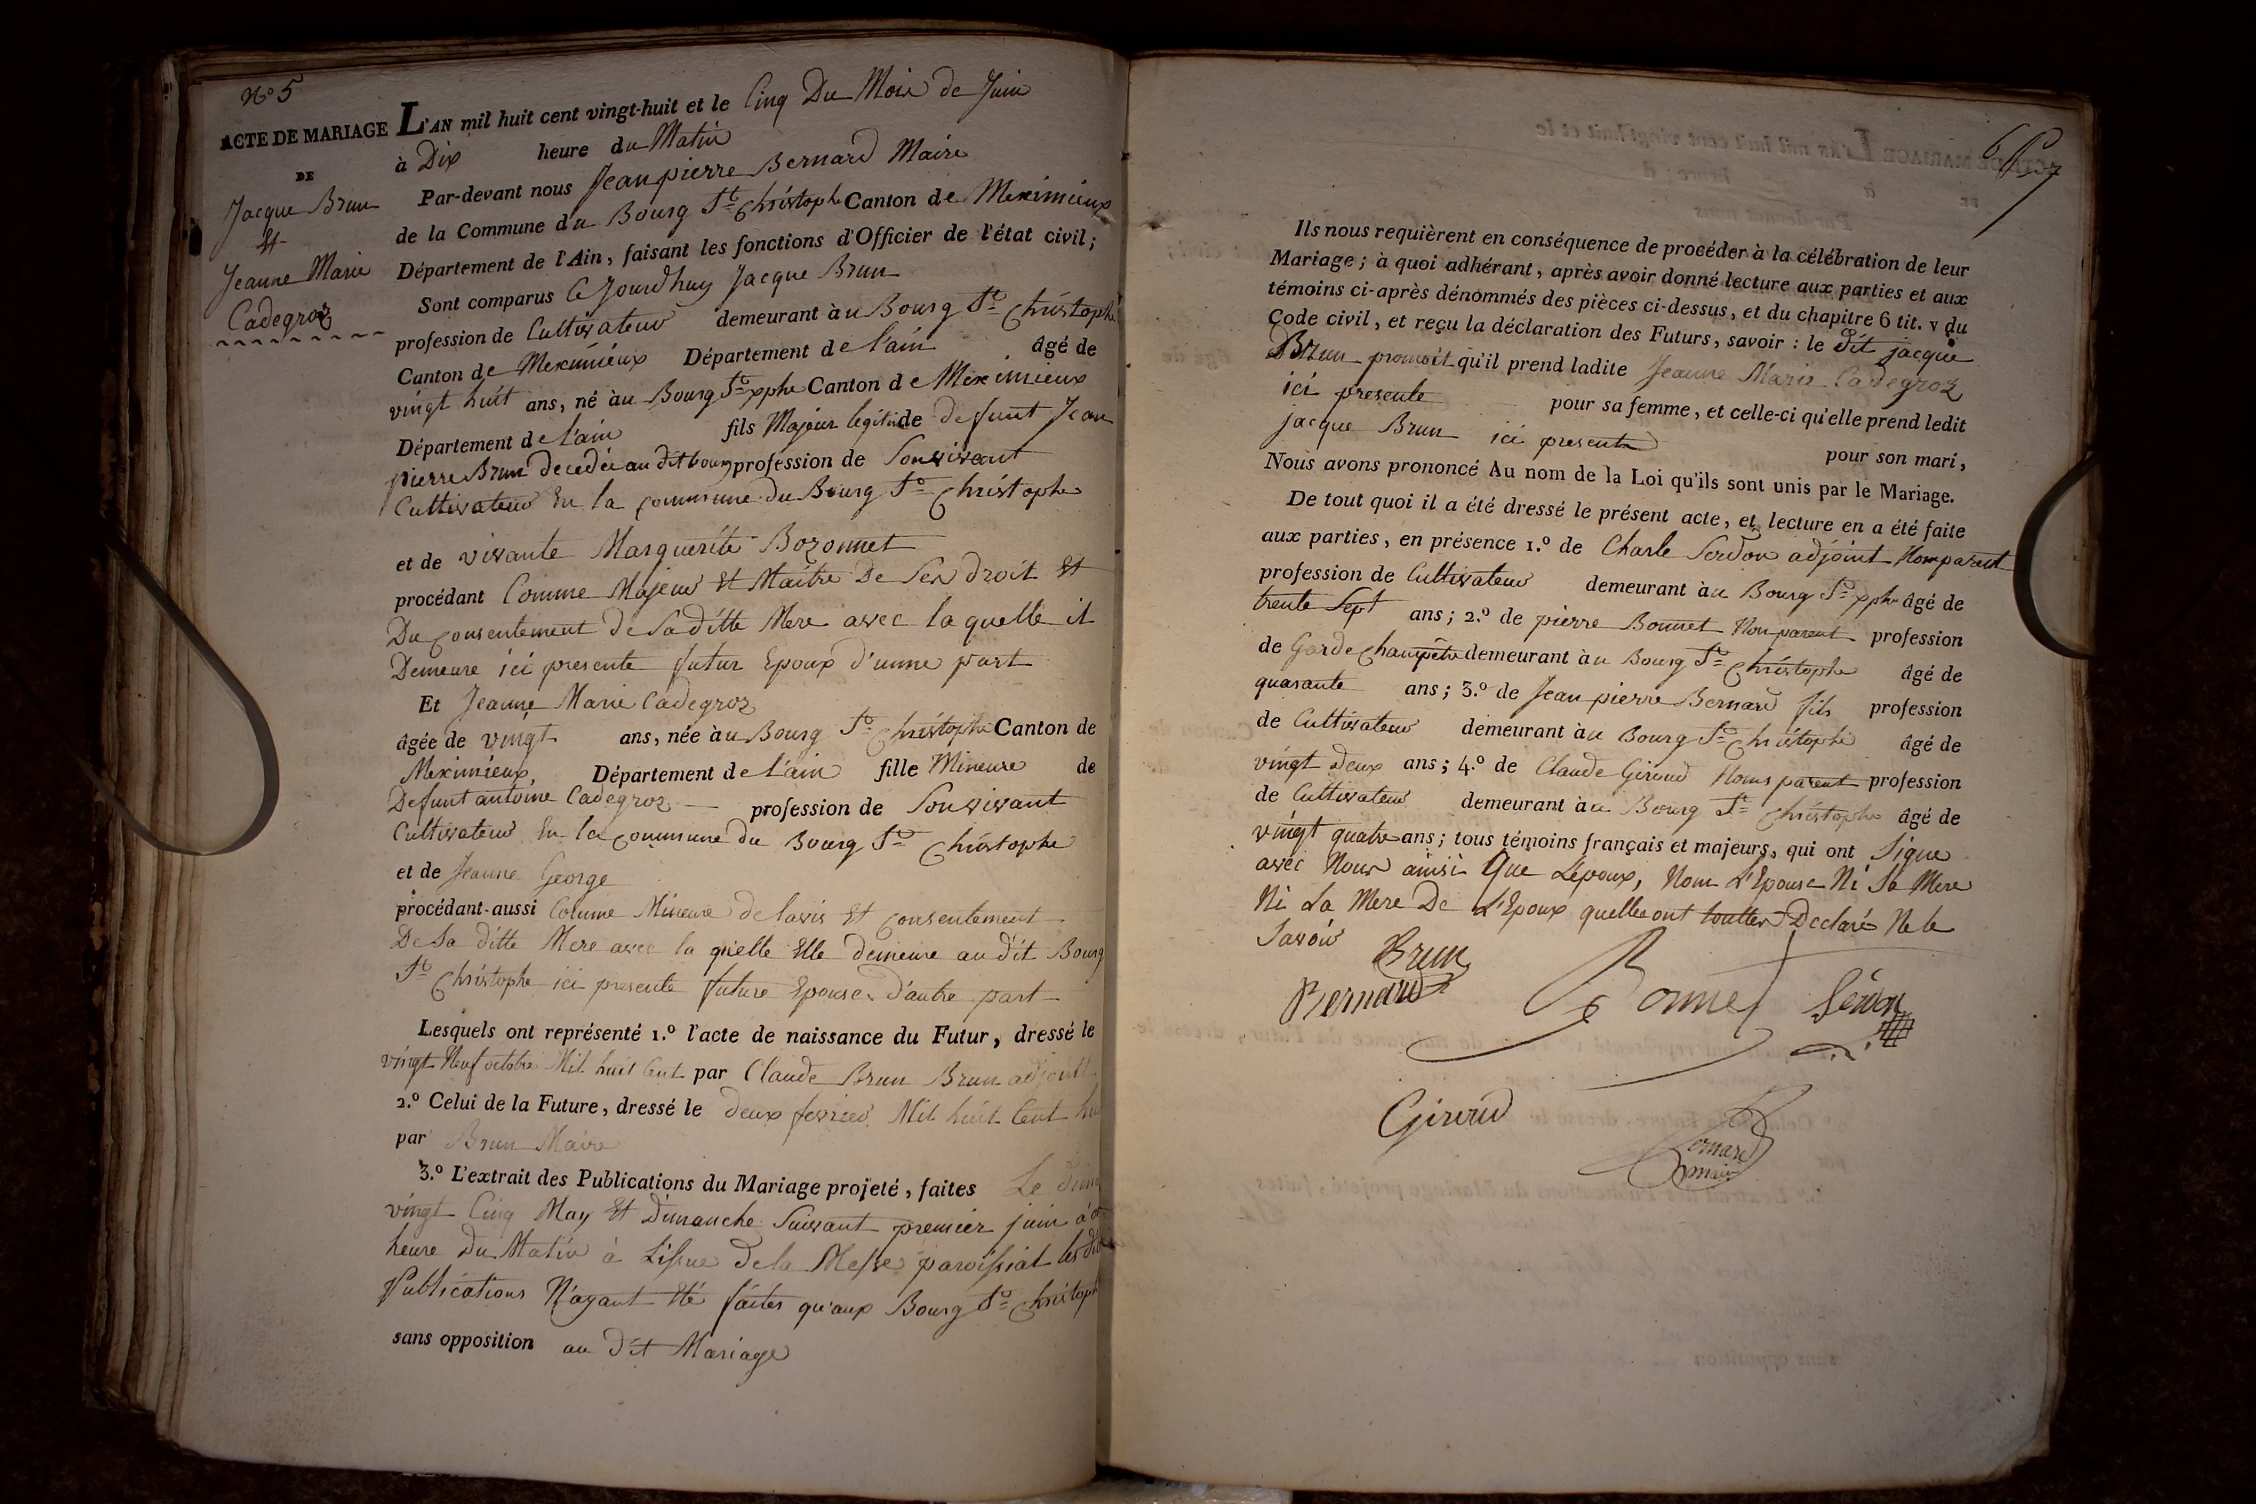 N° 5
ACTE DE MARIAGE
DE
Jacque Brun
Et
Jeanne Marie
Cadegroz
L'AN mil huit cent vingt-huit et le Cinq Du Mois de Juin
à Dix heure du Matin
Par-devant nous Jean pierre Bernard Maire
de la Commune du Bourg St Christophe Canton de Meximieux
Département de l'Ain, faisant les fonctions d'Officier de l'état civil;
Sont comparus Ce Jourdhuy Jacque Brun
profession de Cultivateur demeurant àu Bourg St Christophe
Canton de Meximieux Département de l'ain âgé de
vingt huit ans, né àu Bourg St xphe Canton de Meximieux
Département de l'ain fils Majeur legitime de defunt Jean
pierre Brun decedée au dit bourg profession de Son vivant
Cultivateur En la Commune du Bourg St Christophe
et de vivante Marguerite Bozonnet
procédant Comme Majeur Et Maitre De Ses droit Et
Du Consentement de Saditte Mere avec laquelle il
Demeure ici presente futur Epoux d'unne part
Et Jeanne Marie Cadegroz
âgée de vingt ans, née àu Bourg St Christophe Canton de
Meximieux, Département de l'ain fille Mineure de
Defunt antoine Cadegroz profession de Son vivant
Cultivateur En la Commune du Bourg St Christophe
et de Jeanne George
procédant-aussi Comme Mineure de lavis Et Consentement
De Sa ditte Mere avec la quelle Elle demeure au dit Bourg
St Christophe ici presente future Epouse d'autre part
Lesquels ont représenté 1.° l'acte de naissance du Futur, dressé le
vingt Neuf octobre Mil huit Cent par Claude Brun Brun adjoint
2.° Celui de la Future, dressé le deux fevrier Mil huit Cent
par Brun Maire
3.° L'extrait des Publications du Mariage projeté, faites Le
vingt Cinq May Et Dimanche Suivant premier juin à
heure Du Matin à Lissue de la Messe paroissial les
Publications N'ayant Eté faites qu'aux Bourg St Christophe
sans opposition au dit Mariage
Ils nous requièrent en conséquence de procéder à la célébration de leur
Mariage; à quoi adhérant, après avoir donné lecture aux parties et aux
témoins ci-après dénommés des pièces ci-dessus, et du chapitre 6 tit. v du
Code civil, et reçu la déclaration des Futurs, savoir : le dit jacque
Brun promoit qu'il prend ladite Jeanne Marie Cadegroz
ici presente pour sa femme, et celle-ci qu'elle prend ledit
jacque Brun ici present pour son mari,
Nous avons prononcé Au nom de la Loi qu'ils sont unis par le Mariage.
De tout quoi il a été dressé le présent acte, et lecture en a été faite
aux parties, en présence 1.° de Charle Serdon adjoint Nom parent
profession de Cultivateur demeurant àu Bourg St xphe âgé de
trente Sept ans; 2.° de pierre Bonnet Non parent profession
de Garde Champêtre demeurant àu Bourg St Christophe âgé de
quarante ans; 3.° de Jean pierre Bernard fils profession
de Cultivateur demeurant àu Bourg St Christophe âgé de
vingt deux ans; 4.° de Claude Giroud Noms parent profession
de Cultivateur demeurant àu Bourg St Christophe âgé de
vingt quatre ans; tous témoins français et majeurs, qui ont Signe
avec Nous ainsi Que L'epoux, Nom L'Epouse Ni Sa Mere
Ni La Mere De L'Epoux quelle ont touttes Declaré Ne le
Savoir
Brun
Bernard
Bonnet
Sérdon
Giroud
Bernard
maire